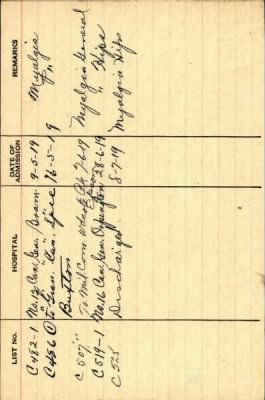 LIST No. HOSPITAL DATE OF ADMISSION REMARKS
C482-1 No. 12 Can. Gen. Bram. 9-5-19 Myalgia
C486 to Gran. Can. Spec 16-5-19 "
Buxton
C507 To Mil Con. Epsom 7-6-19 Myalgia General
C519-1 No. 16 Can. Gen. Orpington 28-6-19 " Hips
C525 Discharged 8-7-19 Myalgia Hips